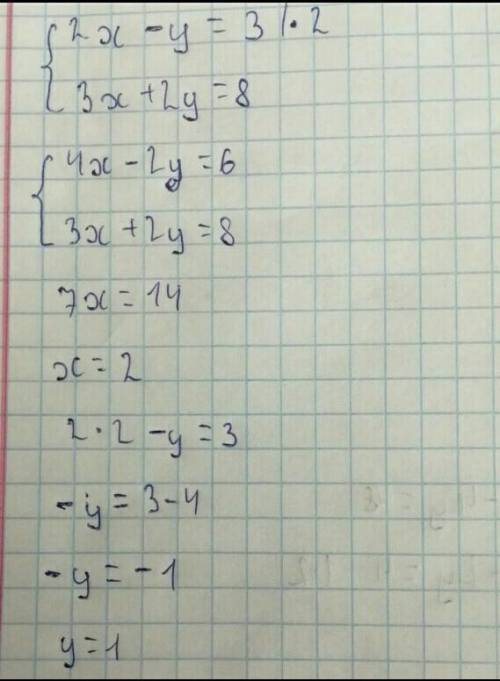 2x - y = 3 | · 2
3x + 2y = 8
4x - 2y = 6
3x + 2y = 8
7x = 14
x = 2
2 · 2 - y = 3
- y = 3 - 4
- y = - 1
y = 1